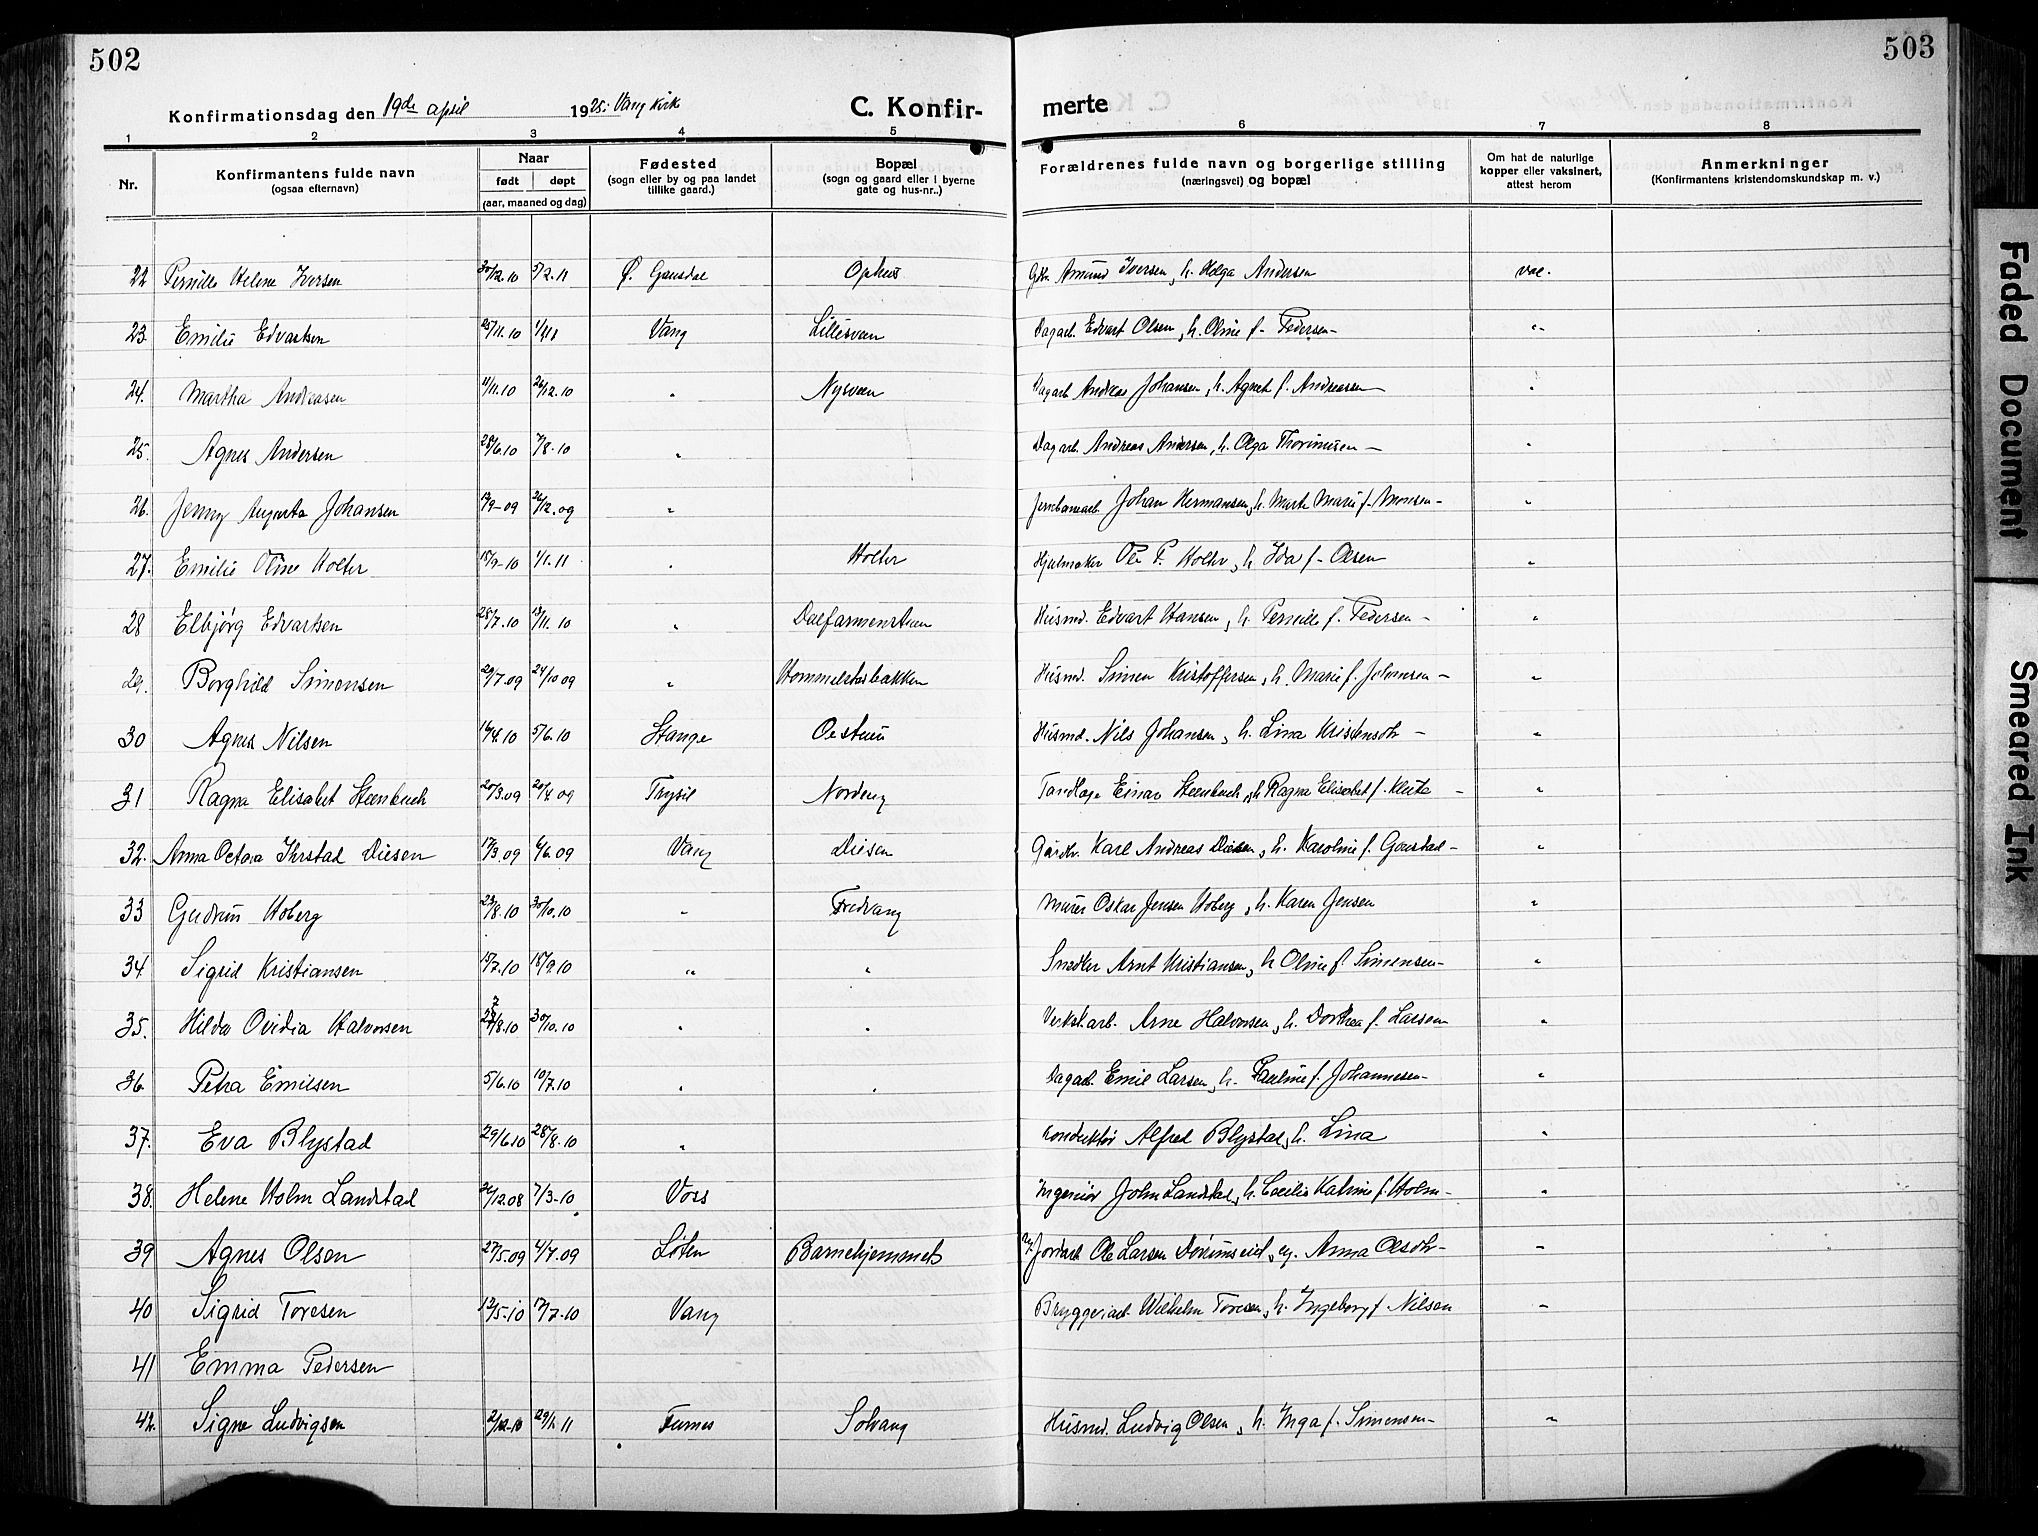 502
503
Konfirmationsdag den 19de april 1925. Vang kirk
C. Konfir-
merte
1 2 3 4 5 6 7 8
Nr.
Konfirmantens fulde navn
(ogsaa efternavn)
Naar
født døpt
(aar, maaned og dag)
Fødested
(sogn eller by og paa landet
tillike gaard.)
Bopæl
(sogn og gaard eller i byerne
gate og hus-nr..)
Forældrenes fulde navn og borgerlige stilling
(næringsvei) og bopæl
Om hat de naturlige
kopper eller vaksinert,
attest herom
Anmerkninger
(Konfirmantens kristendomskundskap m. v.)
22 Pernille Helene Iversen 30/12.10 5/2.11 Ø. Gausdal Ophus Gbr. Amund Iversen, h. Helga Andersen vac.
23. Emilie Edvartsen 25/11.10 Vang Lillesveen Dagarb. Edvart Olsen, h. Oline f. Pedersen "
24. Martha Andreasen 11/11.10 26/12.10 " Nysveen Dagarb Andreas Johansen, h. Agnet f. Andreassen "
25. Agnes Andersen 28/6.10 7/8.10 " Dagarb. Andreas Andersen, h. Olga Thorinusen "
26. Jenny Augusta Johansen 12/9-09 26/12.09 " Jernbanearb. Johan Hermansen, h. Marte Marie f. Monsen "
27. Emilie Otine Holter 15/9-10 1/1.11 " Holter Hjulmaker Ole P. Holter, h. Ida f. Olsen "
28 Elbjørg Edvartsen 28/7.10 13/11.10 " Dalfarmenstuen Husmd. Edvart Hansen, h. Pernille f. Pedersen "
29. Borghild Simensen 29/7.09 24/10 09 " Hommelstadbakken Husmd. Simen Kristoffersen, h. Marie f. Johansen "
30 Agnes Nilsen 16/4.10 5/6.10 Stange Oestuen Husmd. Nils Johansen, h. Lina Kristensdtr "
31 Ragna Elisabet Steenbuch 20/3.09 20/4 09 Trysil Nordeng Tandlæge Einar Steenbuch, h. Ragna Elisabet f. "
32. Anna Octava Ihrstad Diesen 17/3.09 6/6.09 Vang Diesen Gårdbr. Karl Andreas Diesen, h. Karoline f. "
33 Gudrun Hoberg 23/8.10 30/10.10 " Fredvang Murer Oskar Jensen Hoberg, h. Karen Jensen "
34. Sigrid Kristiansen 15/7.10 18/9 10 " " Snedker Arnt Kristiansen, h Oline f. Simensen "
35. Hilda Ovidia Halvorsen 30/10.10 " " Verkst.arb. Arne Halvorsen, h. Dorthea f. Larsen "
36. Petra Emilsen 5/6.10 10/7.10 " " Dagarb. Emil Larsen, h. Pauline f. Johannesen "
37. Eva Blystad 29/6.10 28/8.10 " Konduktør Alfred Blystad, h. Lina "
38. Helene Holm Landstad 26/12.08 7/3-10 Voss Ingeniør John Landstad, h. Cecilie Katrine f. Holm "
39 Agnes Olsen 27/5.09 4/7.09 Løten Barnehjemmet Jordarb Ole Larsen, Anna Olsdtr "
40 Sigrid Toresen 12/5-10 17/7.10 Vang Bryggeriarb. Wilhelm Toresen, h. Ingeborg f. Nilsen "
41 Emma Pedersen
42. Signe Ludvigsen 2/12-10 29/1.11 Furnes Solvang Husmd. Ludvig Olsen, h. Inga f. Simensen "
Faded Document
Smeared Ink